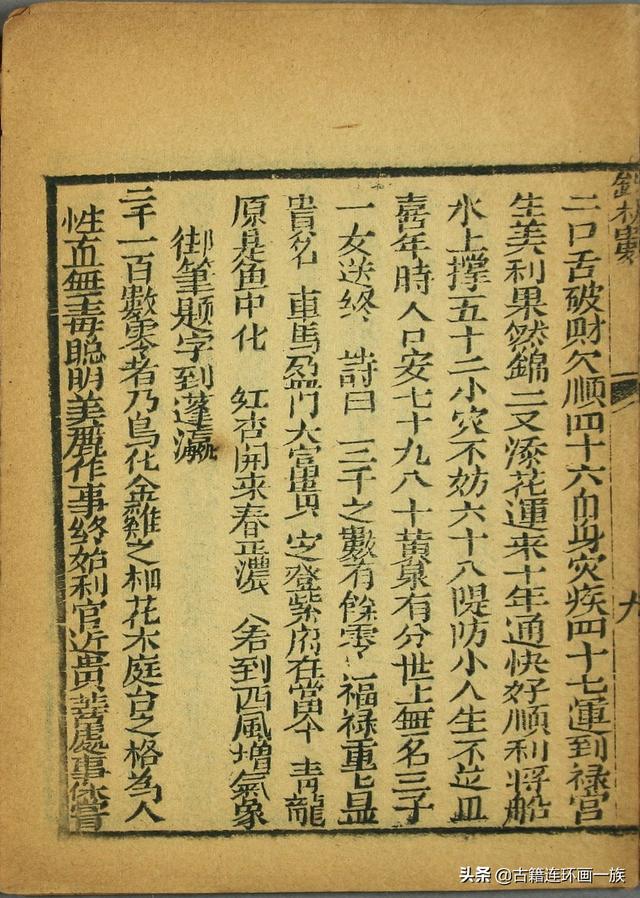 二口舌破財欠順四十六自身灾疾四十七運到禄宮
生美利果然錦二又添花運来十年通快好順利将船
水上撑五十二小灾不妨六十八隄防小人生不並皿
喜年時人口安七十九八十黄泉有分世上無名三子
一女送终 詩曰 二千之數有餘零 福禄重重显
貴名 車馬盈門大富貴 定登紫府在當今 青龍
原是鱼中化 红杏開来春正濃 若到西風増氣象
御筆题字到蓬瀛
二千一百數零者乃鳥化金雞之 花木庭台之格為人
性直無毒聰明美麗作事终始利官近貴善處事
九
头条 @古籍连环画一族